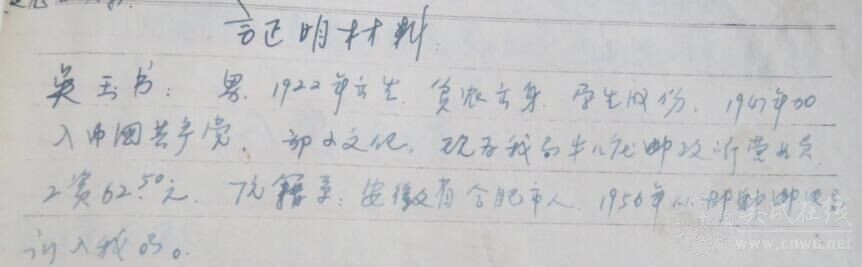 证明材料:
吴玉书: 男. 1922年出生. 贫农出身. 学生成份. 1947年加
入中国共产党. 初小文化. 现为我局 邮政 营业员.
工资62.50元. 原籍系: 安徽省合肥市人. 1956年 邮
入我局。
吴氏在线
www.cnwu.net